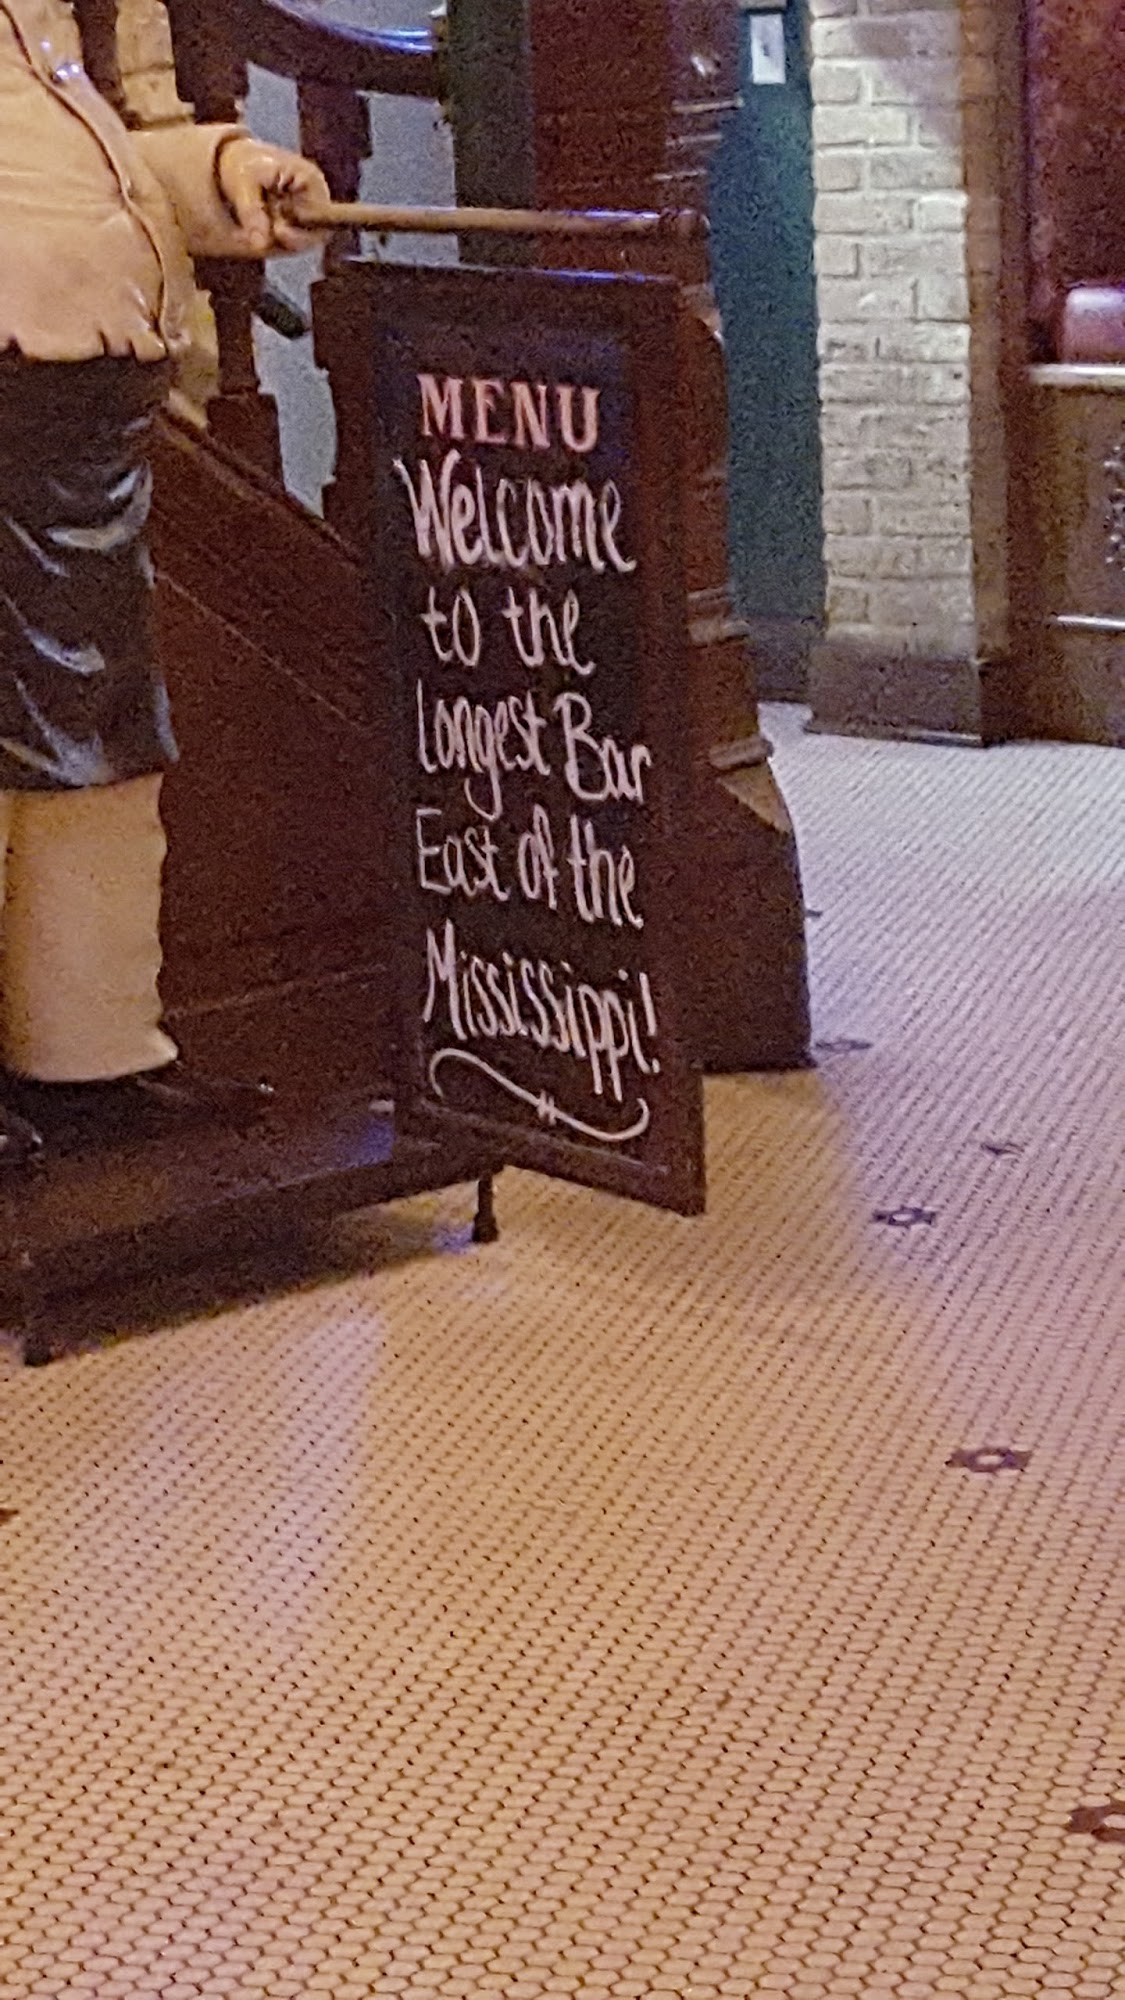 MENU
Welcome
to the
longest Bar
East of the
Mississippi!